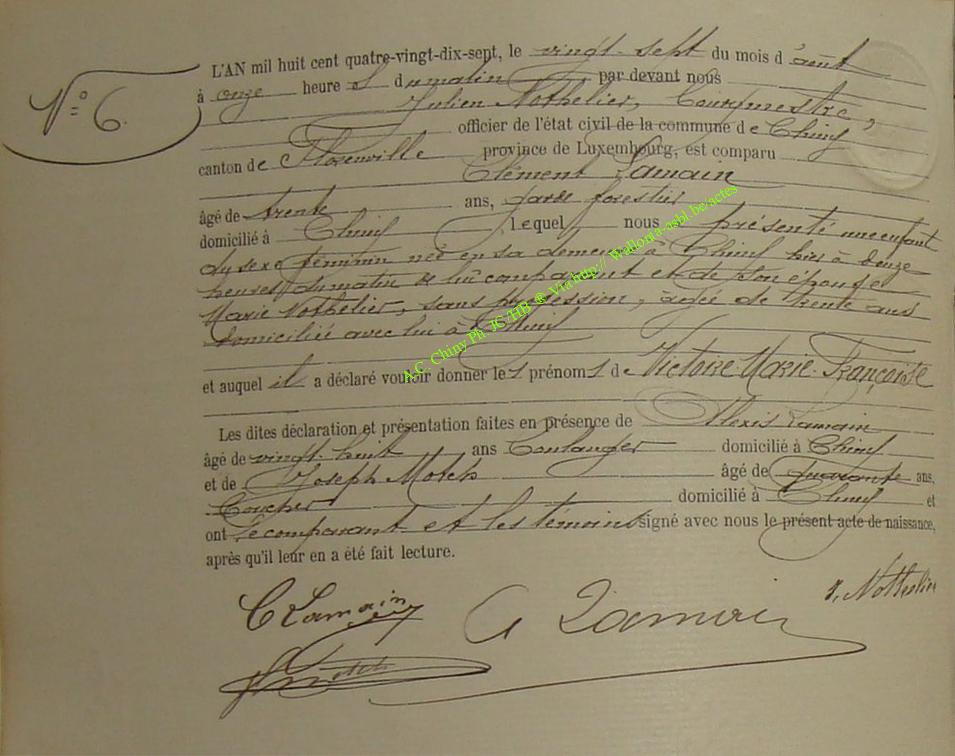 N° 6.
L'AN mil huit cent quatre-vingt-dix-sept, le vingt-sept du mois d'août
à onze heure s du matin par devant nous
Julien Nothelier, Bourgmestre,
officier de l'état civil de la commune de Chiny
canton de Florenville province de Luxembourg, est comparu
Clément Lamain
âgé de trente ans, garde forestier
domicilié à Chiny Lequel nous a présenté une enfant
du sexe féminin née en sa demeure à Chiny hier à douze
heures du matin de lui comparant et de son épouse
Marie Nothelier, sans profession, âgée de trente ans
domiciliée avec lui à Chiny
et auquel il a déclaré vouloir donner le s prénom s de Victoire-Marie-Françoise
Les dites déclaration et présentation faites en présence de Alexis Lamain
âgé de vingt-huit ans Boulanger domicilié à Chiny
et de Joseph âgé de quarante ans,
domicilié à Chiny et
ont le comparant et les témoins signé avec nous le présent acte de naissance,
après qu'il leur en a été fait lecture.
C Lamain A Lamain J. Nothelier
A.C. Chiny Ph. JC/HB ® Via http://Wallonia-asbl.be/actes